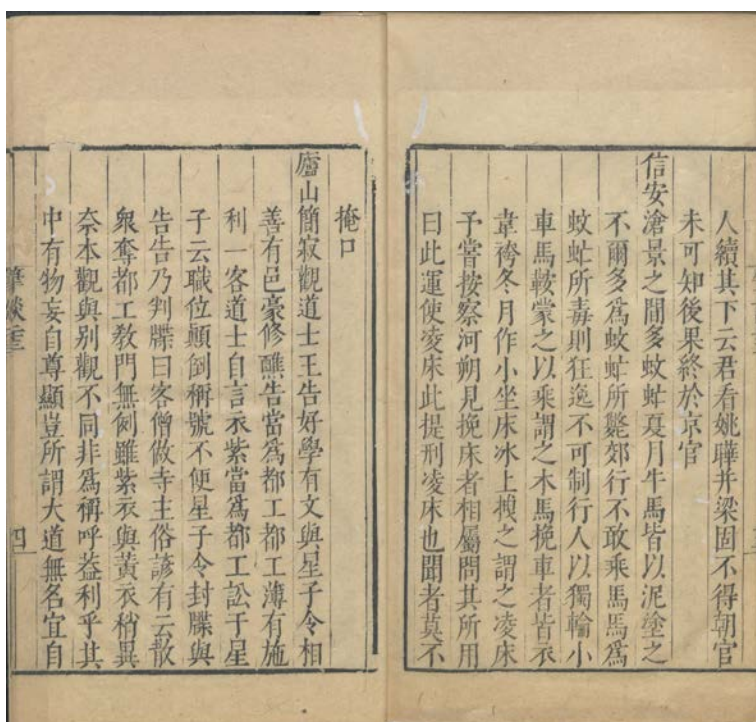 人續其下云君看姚曄并梁固不得朝官
未可知後果終於京官
信安滄景之間多蚊虻夏月牛馬皆以泥塗之
不爾多爲蚊虻所斃郊行不敢乘馬馬爲
蚊虻所毒則狂逸不可制行人以獨輪小
車馬鞍蒙之以乘謂之木馬挽車者皆衣
韋袴冬月作小坐床冰上拽之謂之凌床
予嘗按察河朔見挽床者相屬問其所用
曰此運使凌床此提刑凌床也聞者莫不
掩口
廬山簡寂觀道士王告好學有文與星子令相
善有邑豪修醮告當爲都工都工薄有施
利一客道士自言衣紫當爲都工訟于星
子云職位顛倒稱號不便星子令封牒與
告告乃判牒曰客僧做寺主俗諺有云散
衆奪都工教門無例雖紫衣與黃衣稍異
奈本觀與别觀不同非爲稱呼葢利乎其
中有物妄自尊顯豈所謂大道無名宜自
筆談
四